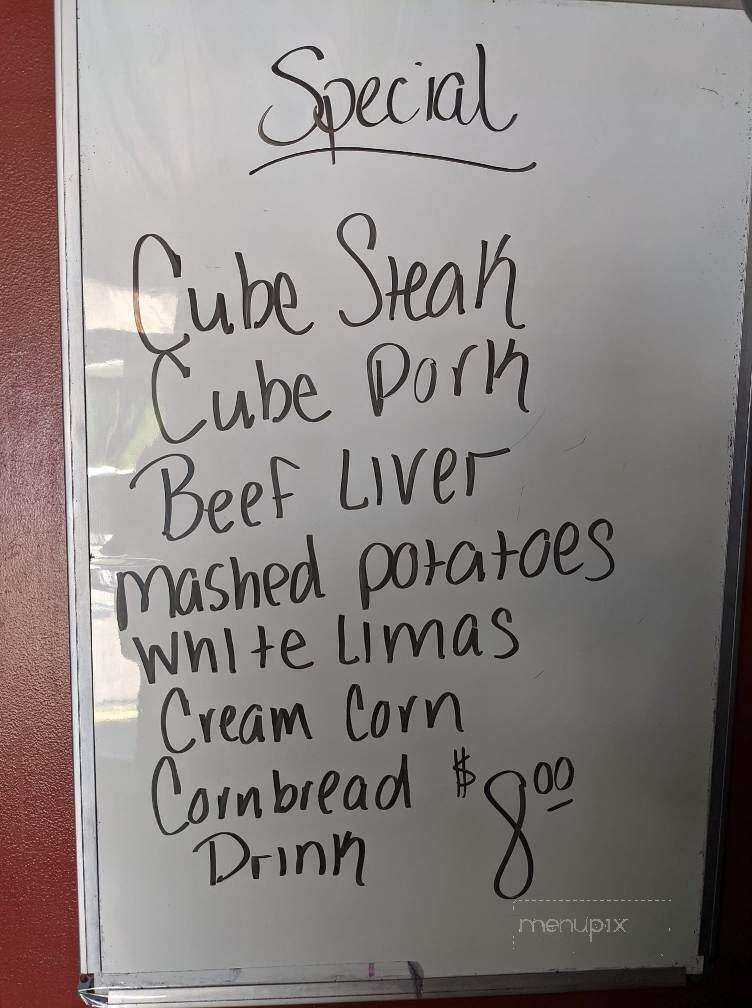 Special
Cube Steak
Cube Pork
Beef Liver
mashed potatoes
white Limas
Cream Corn
Cornbread $8.00
Drink
menupix